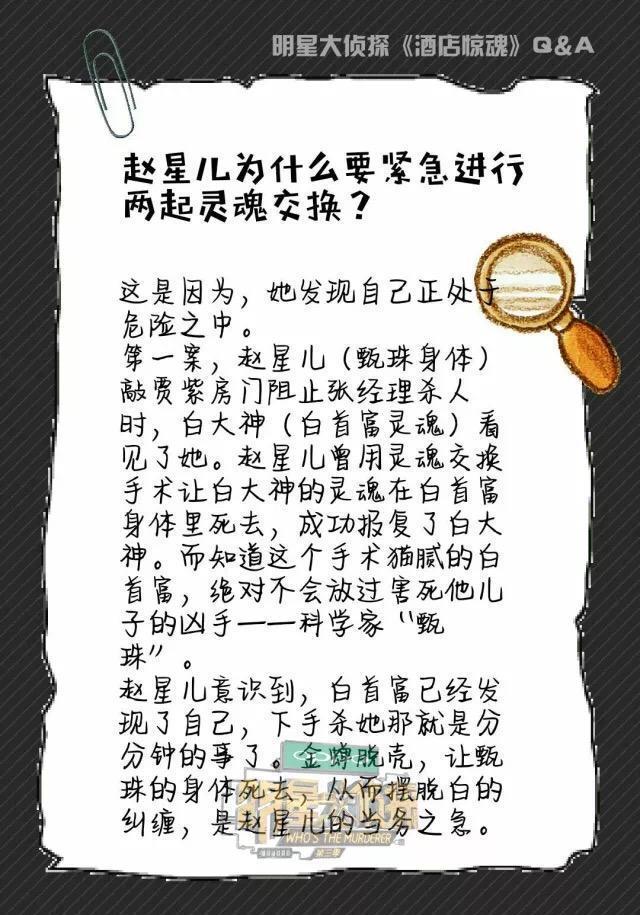 明星大侦探《酒店惊魂》Q&A
赵星儿为什么要紧急进行
两起灵魂交换？
这是因为，她发现自己正处于
危险之中。
第一案，赵星儿（甄珠身体）
敲贾紫房门阻止张经理杀人
时，白大神（白首富灵魂）看
见了她。赵星儿曾用灵魂交换
手术让白大神的灵魂在白首富
身体里死去，成功报复了白大
神。而知道这个手术猫腻的白
首富，绝对不会放过害死他儿
子的凶手——科学家“甄
珠”。
赵星儿意识到，白首富已经发
现了自己，下手杀她那就是分
分钟的事了。金蝉脱壳，让甄
珠的身体死去，从而摆脱白的
纠缠，是赵星儿的当务之急。
明星大侦探
WHO'S THE MURDERER
第三季